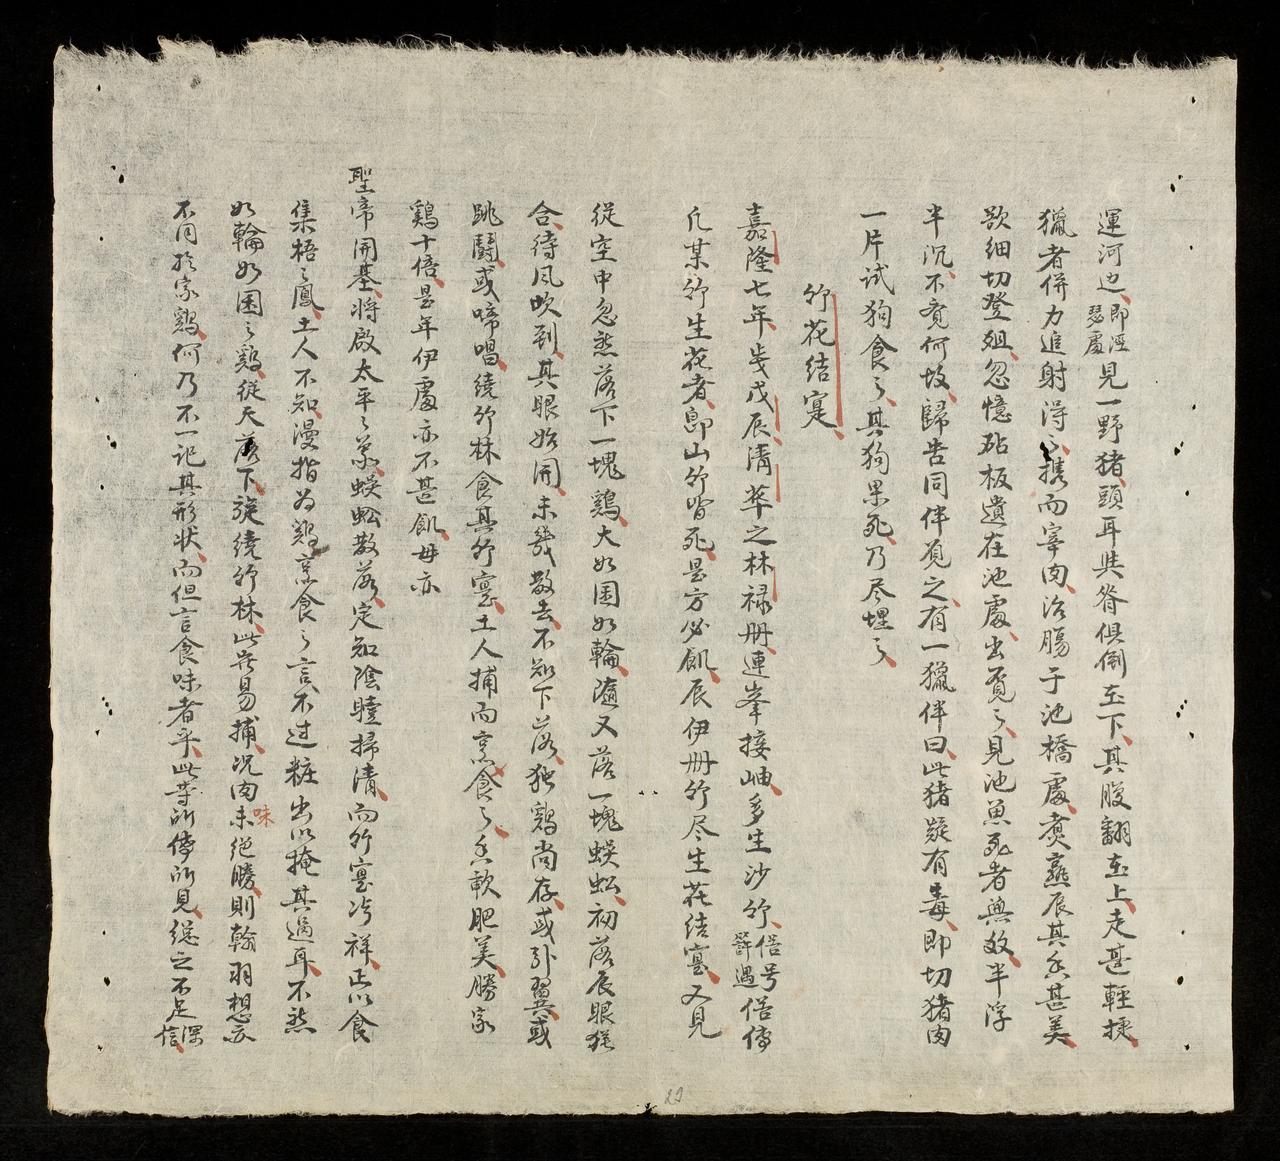 運河边即涇瑟處見一野猪頭耳與脊俱倒在下其腹翻在上走甚輕捷
獵者併力追射淂之携而宰肉治膓于池橋處煑熟辰其香甚美
欲细切登俎忽憶砧板遺在池處出覓之見池魚死者無效半浮
半沉不覔何故歸告同伴觅之有一獵伴曰此猪疑有毒即切猪肉
一片試狗食之其狗果死乃尽埋之
竹花结寔
嘉隆七年歩戊辰清華之林禄册連峯接岫多生沙竹俗号箖遇俗傳
凢某竹生花者即山竹皆死是方必飢辰伊册竹尽生花结寔又見
從空中忽然落下一塊鷄大如囷如輪適又落一塊蜈蚣初落辰眼猶
合待风吹到其眼始開未幾散去不知下落独鷄尚存或引翼或
跳鬪或啼唱繞竹林食其竹寔土人捕而烹食之香軟肥美勝家
鷄十倍是年伊處亦不甚飢毋亦
聖帝開基将啟太平之兆蜈蚣散落定知陰曀掃清而竹寔为祥正以食
集梧之鳳土人不知漫指为鷄烹食之言不过粧出以掩其過耳不然
如輪如囷之鷄從天落下旋繞竹林此豈易捕况肉味未絶勝則翰羽想亦
不同於家鷄何乃不一记其形状而但言食味者乎此等所傳所見縂之不足深信
22